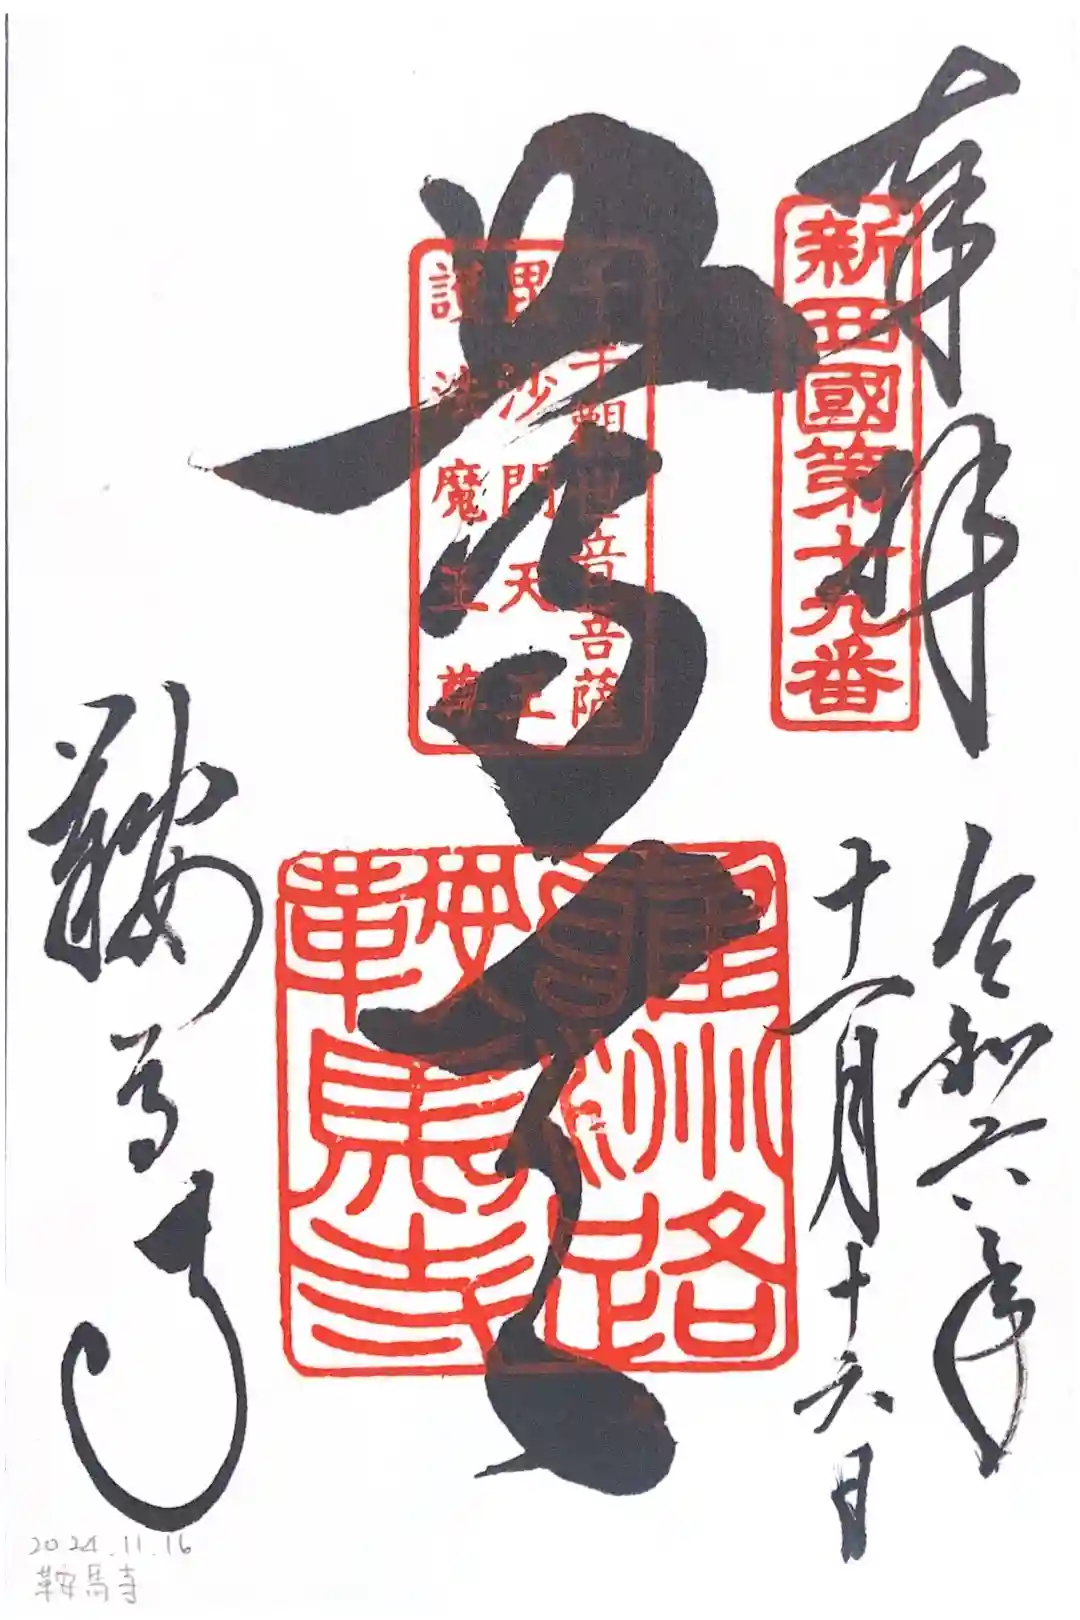 奉拝
新西國第十九番
令和六年
十一月十六日
千手觀世音菩薩
毘沙門天王
護法魔王尊
尊天
雍州路
鞍馬寺
鞍馬寺
2024.11.16
鞍馬寺